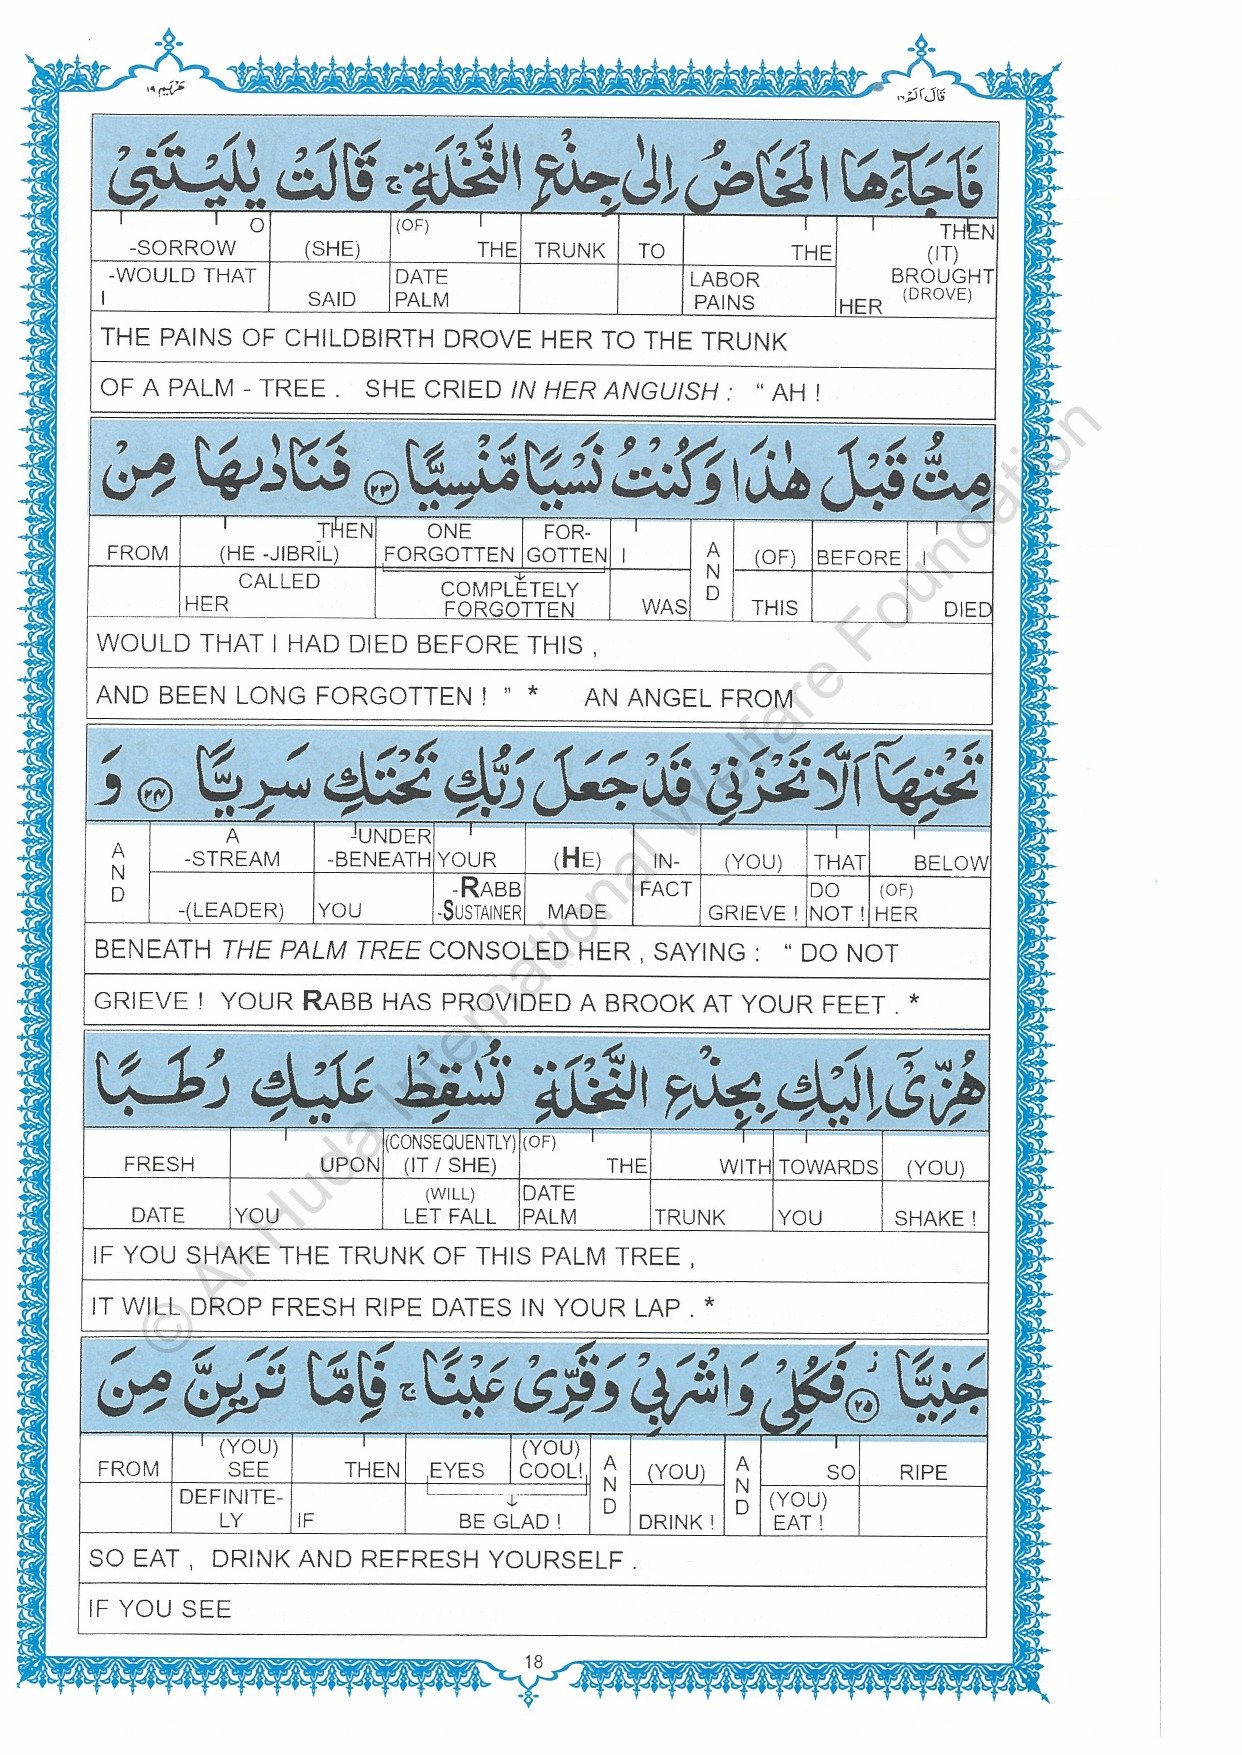 مَرْيَم ١٩
قَالَ اَلَمْ ١٦
فَاَجَآءَهَا الْمَخَاضُ اِلٰى جِذْعِ النَّخْلَةِ ۚ قَالَتْ يٰلَيْتَنِىْ
O -SORROW (SHE) (OF) THE TRUNK TO THE THEN (IT)
-WOULD THAT I SAID DATE PALM LABOR PAINS BROUGHT (DROVE) HER
THE PAINS OF CHILDBIRTH DROVE HER TO THE TRUNK
OF A PALM - TREE . SHE CRIED IN HER ANGUISH : “ AH !
مِتُّ قَبْلَ هٰذَا وَكُنْتُ نَسْيًا مَّنْسِيًّا ۝٢٣ فَنَادٰىهَا مِنْ
FROM THEN (HE -JIBRĪL) ONE FORGOTTEN FOR- GOTTEN I AND (OF) BEFORE I
CALLED HER COMPLETELY FORGOTTEN WAS THIS DIED
WOULD THAT I HAD DIED BEFORE THIS ,
AND BEEN LONG FORGOTTEN ! ” * AN ANGEL FROM
تَحْتِهَآ اَلَّا تَحْزَنِىْ قَدْ جَعَلَ رَبُّكِ تَحْتَكِ سَرِيًّا ۝٢٤ وَ
AND A -STREAM -UNDER -BENEATH YOUR (HE) IN- (YOU) THAT BELOW
-(LEADER) YOU -RABB -SUSTAINER MADE FACT GRIEVE ! DO NOT ! (OF) HER
BENEATH THE PALM TREE CONSOLED HER , SAYING : “ DO NOT
GRIEVE ! YOUR RABB HAS PROVIDED A BROOK AT YOUR FEET . *
هُزِّىْٓ اِلَيْكِ بِجِذْعِ النَّخْلَةِ تُسٰقِطْ عَلَيْكِ رُطَبًا
FRESH UPON (CONSEQUENTLY) (IT / SHE) (OF) THE WITH TOWARDS (YOU)
DATE YOU (WILL) LET FALL DATE PALM TRUNK YOU SHAKE !
IF YOU SHAKE THE TRUNK OF THIS PALM TREE ,
IT WILL DROP FRESH RIPE DATES IN YOUR LAP . *
جَنِيًّا ۝٢٥ ز فَكُلِىْ وَاشْرَبِىْ وَقَرِّىْ عَيْنًا ۚ فَاِمَّا تَرَيِنَّ مِنَ
FROM (YOU) SEE THEN EYES (YOU) COOL! AND (YOU) AND SO RIPE
DEFINITE- LY IF BE GLAD ! DRINK ! (YOU) EAT !
SO EAT , DRINK AND REFRESH YOURSELF .
IF YOU SEE
18
© Al-Huda International Welfare Foundation